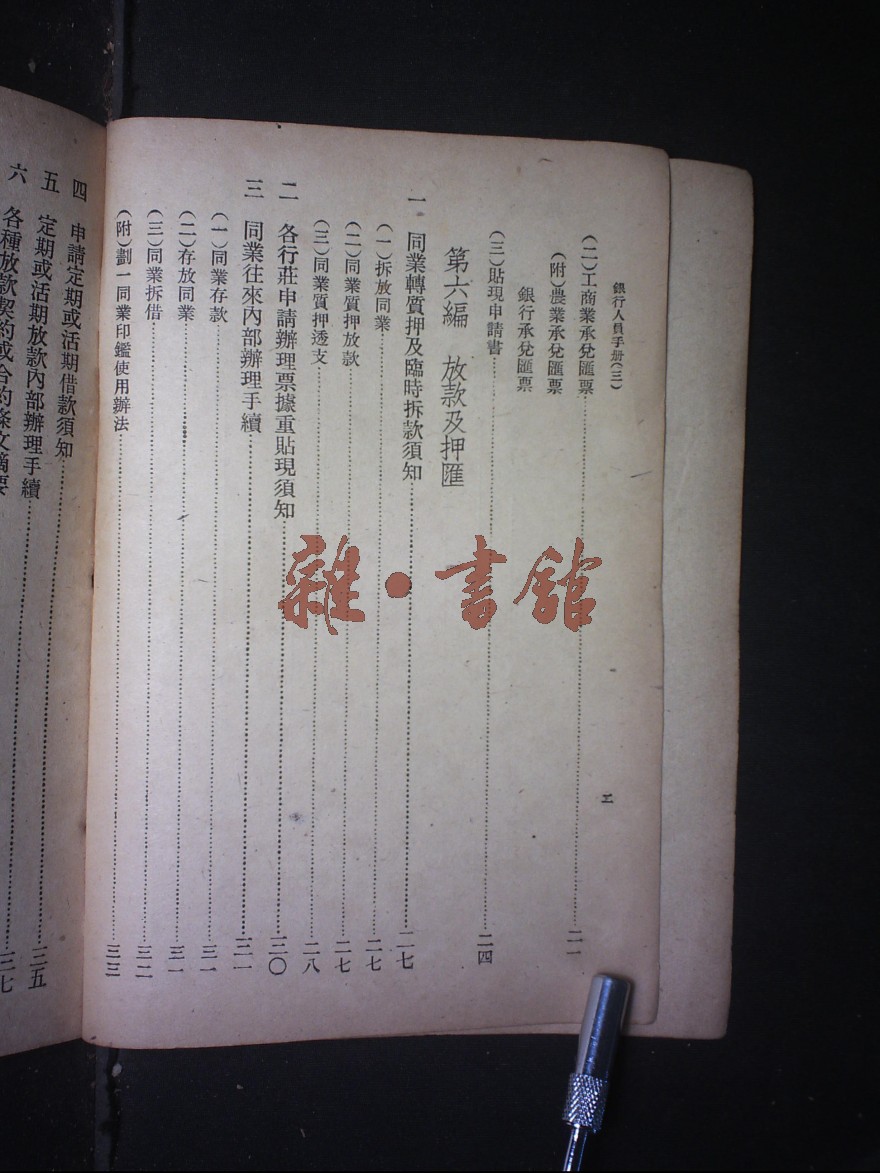 銀行人員手册(三)
二
(二)工商業承兌匯票……二一
(附)農業承兌匯票
銀行承兌匯票
(三)貼現申請書……二四
第六編 放款及押匯
一 同業轉質押及臨時拆款須知……二七
(一)拆放同業……二七
(二)同業質押放款……二七
(三)同業質押透支……二八
二 各行莊申請辦理票據重貼現須知……三〇
三 同業往來內部辦理手續……三一
(一)同業存款……三一
(二)存放同業……三一
(三)同業拆借……三二
(附)劃一同業印鑑使用辦法……三三
四 申請定期或活期借款須知……三五
五 定期或活期放款內部辦理手續……三七
六 各種放款契約或合約條文摘要
雜·書館